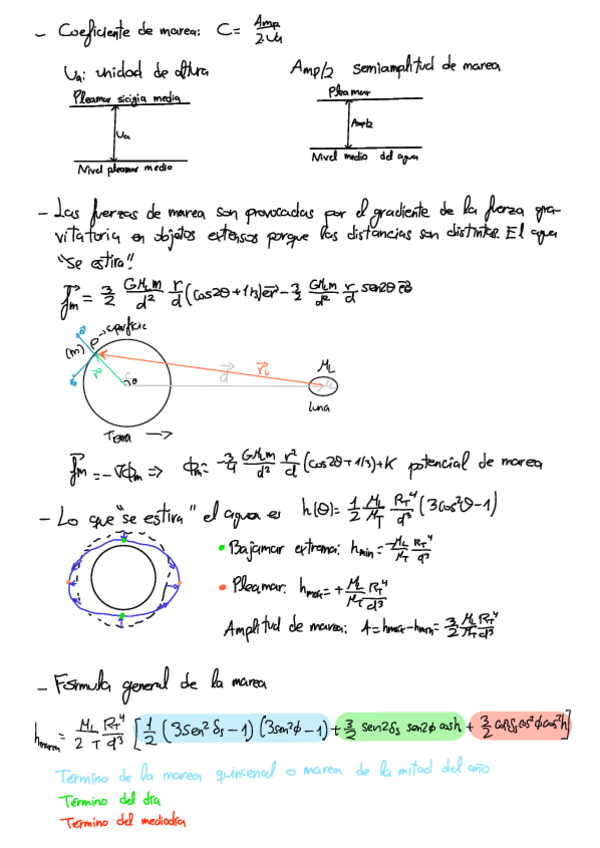 - Coeficiente de marea: C = Amp/2Ua
Ua: unidad de altura
Amp/2 semiamplitud de marea
Pleamar sicigia media
Ua
Nivel pleamar medio
Pleamar
Amp/2
Nivel medio del agua
- Las fuerzas de marea son provocadas por el gradiente de la fuerza gra-
vitatoria en objetos extensos porque las distancias son distintas. El agua
"se estira".
f⃗m = 3/2 GMLm/d² r/d (cos2θ + 1/3) e⃗r - 3/2 GMLm/d² r/d sen2θ e⃗θ
P → superficie
(m)
r⃗
θ
d⃗
r⃗L
ML
Luna
Tierra →
f⃗m = -∇ϕm ⇒ ϕm = -3/4 GMLm/d² r²/d (cos2θ + 1/3) + K potencial de marea
- Lo que "se estira" el agua es h(θ) = 1/2 ML/MT RT⁴/d³ (3cos²θ - 1)
• Bajamar extrema: hmin = -ML/MT RT⁴/d³
• Pleamar: hmax = + ML/MT RT⁴/d³
Amplitud de marea: A = hmax - hmin = 3/2 ML/MT RT⁴/d³
- Fórmula general de la marea
hmarea = ML/2T RT⁴/d³ [1/2 (3sen²δs - 1) (3sen²ϕ - 1) + 3/2 sen2δs sen2ϕ cosh + 3/2 cos²δs cos²ϕ cos²h]
Término de la marea quincenal o marea de la mitad del año
Término del día
Término del mediodía